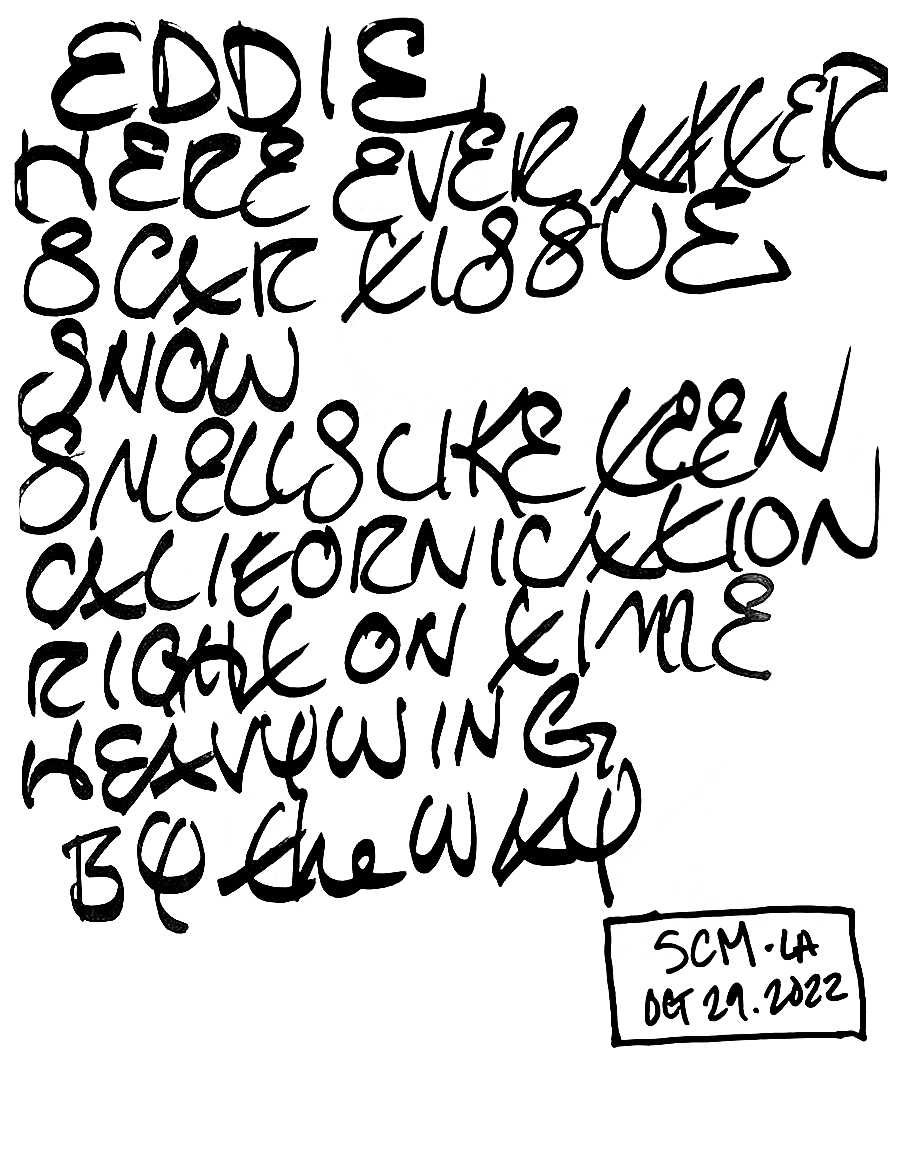 EDDIE
HERE EVER AFTER
SCAR TISSUE
SNOW
SMELLS LIKE TEEN
CALIFORNICATION
RIGHT ON TIME
HEAVY WING
BY the WAY
SCM · LA
OCT 29. 2022